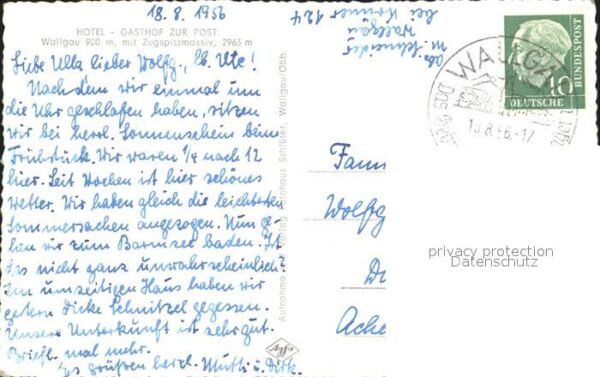 18.8.1956
HOTEL - GASTHOF ZUR POST
Wallgau 900 m, mit Zugspitzmassiv, 2963 m
Liebe Ulla lieber Wolfg., lb. Ute!
Nachdem wir einmal um
die Uhr geschlafen haben, sitzen
wir bei herrl. Sonnenschein beim
Frühstück. Wir waren 1/4 nach 12
hier. Seit Wochen ist hier schönes
Wetter. Wir haben gleich die leichtesten
Sommersachen angezogen. Nun ge-
hen wir zum Barmsee baden. Ist
das nicht ganz unwahrscheinlich?
Im umseitigen Haus haben wir
gestern dicke Schnitzel gegessen.
Unsere Unterkunft ist sehr gut.
Briefl. mal mehr.
Es grüßen herzl. Mutti u. Dirk.
Aufnahme Verlag Photohaus Schlüter, Wallgau/Obb.
Agfa
Abs. Schneider
Wallgau
bei 124
WALLGAU
18.8.56.-17
10
DEUTSCHE
BUNDESPOST
Fam
Wolfg
Ache
privacy protection
Datenschutz